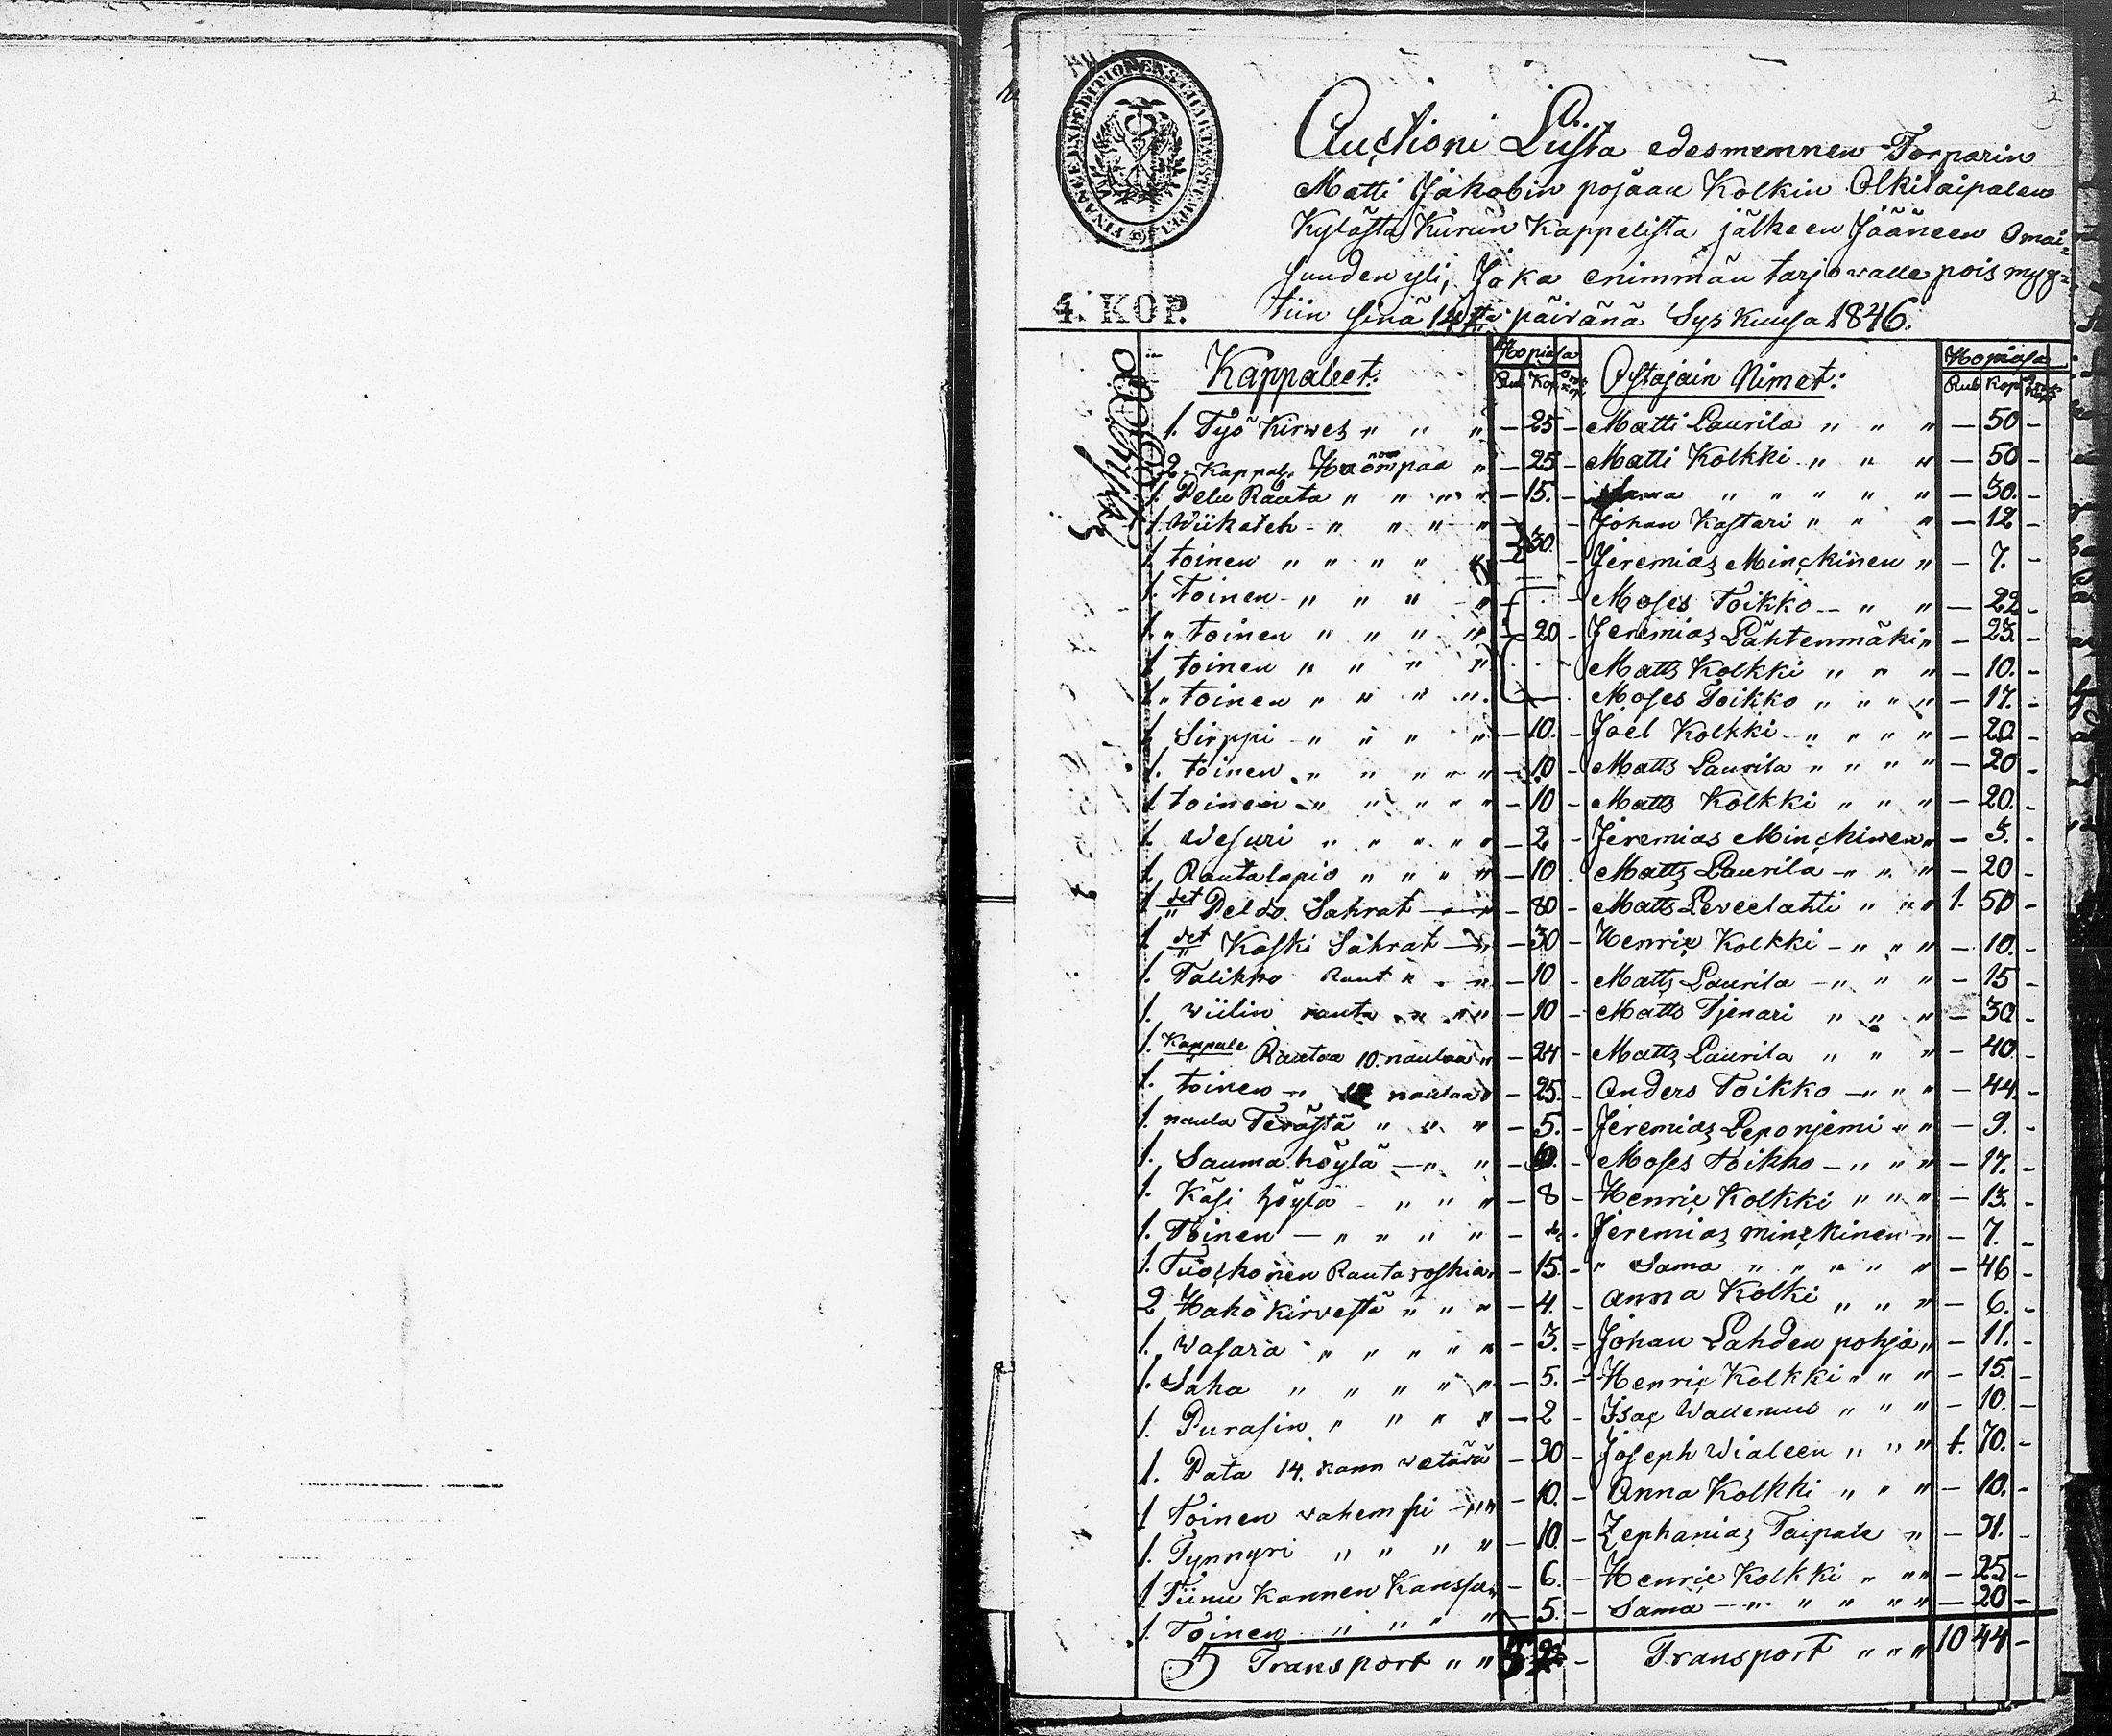 FINANCE EXPEDITIONENS CHARTÆ STEMPEL
4. KOP.
Auctioni Lista edesmennen Torparin
Matti Jakobin pojaan Kolkin Olkitaipalen
Kylästa Kurun Kappelista jälkeen Jääneen Omai=
suuden yli, Joka enimmän tarjovalle pois myy=
tiin sinä 14tä päivänä Syskuusa 1846.
Kappaleet: Hopiasa Rub Kop Ostajain Nimet: Hopiasa Rub Kop
1. Työ Kirwes " " " — 25 — Matti Laurila " " " — 50 —
2. Kappal. — 25 — Matti Kolkki " " " — 50 —
1. Pelu Rauta " " " " — 15. — Sama " " " " " — 30. —
1 Wiikateh — " " " " Johan Kastari " " " — 12 —
1 toinen " " " " " 30. — Jeremias Minckinen " — 7. —
1. Toinen — " " " " — Moses Toikko — " " — 22 —
1. " toinen " " " " 20 — Jeremias Lähtenmäki " — 25. —
1 toinen " " " " Matts Kolkki " " " — 10. —
1. " toinen " " " " Moses Toikko " " " " — 17. —
1 Sirppi — " " " " — 10. — Joel Kolkki — " " " " — 20. —
1. toinen " " " " " — 10 — Matts Laurila " " " " — 20 —
1 toinen — " " " " " — 10 — Matts Kolkki " " " — 20. —
1. Wesuri " " " " " — 2 — Jeremias Minckinen " — 5. —
1. Rautalapio " " " " — 10. Matts Laurila — " " " — 20 —
1 det " Peldo Sahrat — " — 80 — Matts Leveelahti " " " 1. 50 —
1. det " Koski Sahrat — " — 30 — Henric Kolkki — " " " — 10. —
1. Talikko Raut " " — 10 — Matts Laurila — " " " — 15 —
1. wiilin rauta " " " — 10 — Matts Tjenari " " " — 30
1. Kappale " Rautaa 10. naulaa " — 24 — Matts Laurila " " " — 40
1. toinen — " naulaa " — 25. — Anders Toikko — " " " — 44. —
1. naula Terästä " " " — 5. — Jeremias Leponjemi " " — 9. —
1. Sauma höylä — " " — 10. — Moses Toikko — " " " — 17. —
1. Käsi höylä — " " " — 8 — Henric Kolkki " " " — 13. —
1. Toinen — " " " " — 4. Jeremias minckinen " — 7. —
1. Rauta roskia " — 15. — " Sama " " " " " — 46 —
2 Hako kirvestä " " " — 4. — Anna Kolki " " " — 6. —
1. Wasara " " " " " — 3. — Johan Lahden pohja " — 11. —
1. Saha " " " " " — 5. — Henric Kolkki " " " — 15. —
1. Purasin " " " " — 2 — Isac Wallenius " " " — 10. —
1. Pata 14. kann wetävä — 90 — Joseph Wialeen " " " 1. 70. —
1 Toinen vahempi — " " — 10. — Anna Kolkki " " " — 10. —
1. Tynnyri " " " " — 10. — Zephanias Taipale " — 31. —
1 Tiinu Kannen Kansa " — 6. — Henric Kolkki " " " — 25 —
1. Toinen " " " " — 5. — Sama — " " " " " — 20 —
Transport " " Transport " " " 10 44 —